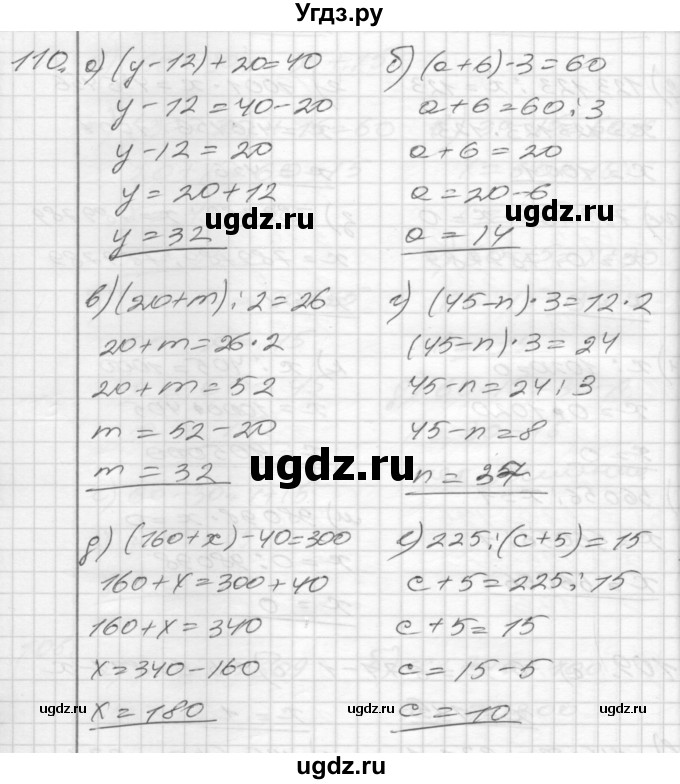 Угдз.ру
110. а) (y-12)+20=40
y-12=40-20
y-12=20
y=20+12
y=32
б) (a+6)·3=60
a+6=60:3
a+6=20
a=20-6
a=14
ugdz.ru
ugdz.ru
в) (20+m):2=26
20+m=26·2
20+m=52
m=52-20
m=32
г) (45-n)·3=12·2
(45-n)·3=24
45-n=24:3
45-n=8
n=37
ugdz.ru
д) (160+x)-40=300
160+x=300+40
160+x=340
x=340-160
x=180
е) 225:(c+5)=15
c+5=225:15
c+5=15
c=15-5
c=10
ugdz.ru
ugdz.ru
ugdz.ru